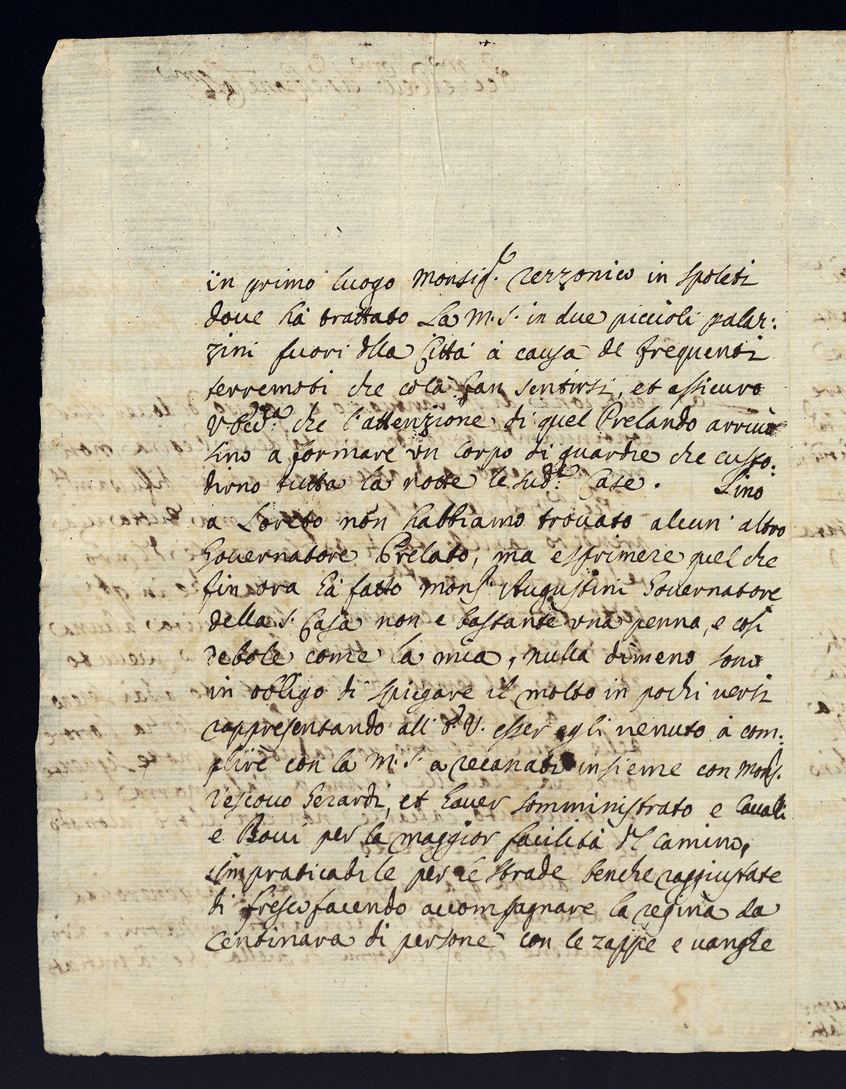 in primo luogo Monsig.r Rezzonico in Spoleti
dove hà trattato La M. S. in due piccioli palaz:
zini fuori dlla Città à causa de frequenti
terremoti che colà fan sentirsi, et assicuro
che l'attenzione di quel Prelando arrivò
sino a formare un corpo di guardie che custo:
dirno tutta la notte le sud.te Case. Sino
a Loreto non habbiamo trovato alcun' altro
Governatore Prelato, ma esprimere quel che
fin ora hà fatto mons.r Augustini Governatore
della S. Casa non e bastante una penna, e così
debole come la mia, nulla dimeno sono
in obligo di spiegare il molto in pochi versi
rappresentando all' V. esser egli venuto à com:
plire con la M. S. a Recanati insieme con Mons.
Vescovo Gerardi, et haver somministrato e Cavalli
e Bovi per la maggior facilità dl Camino,
impraticabile per le strade benche raggiustate
di fresco facendo accompagnare la regina da
Centinara di persone con le zappe e vanghe